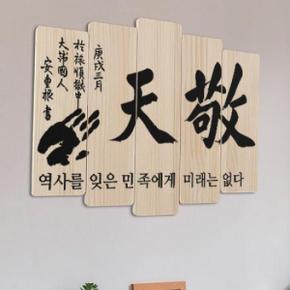 敬天
庚戌三月
於旅順獄中
大韓國人
安重根書
역사를 잊은 민족에게 미래는 없다